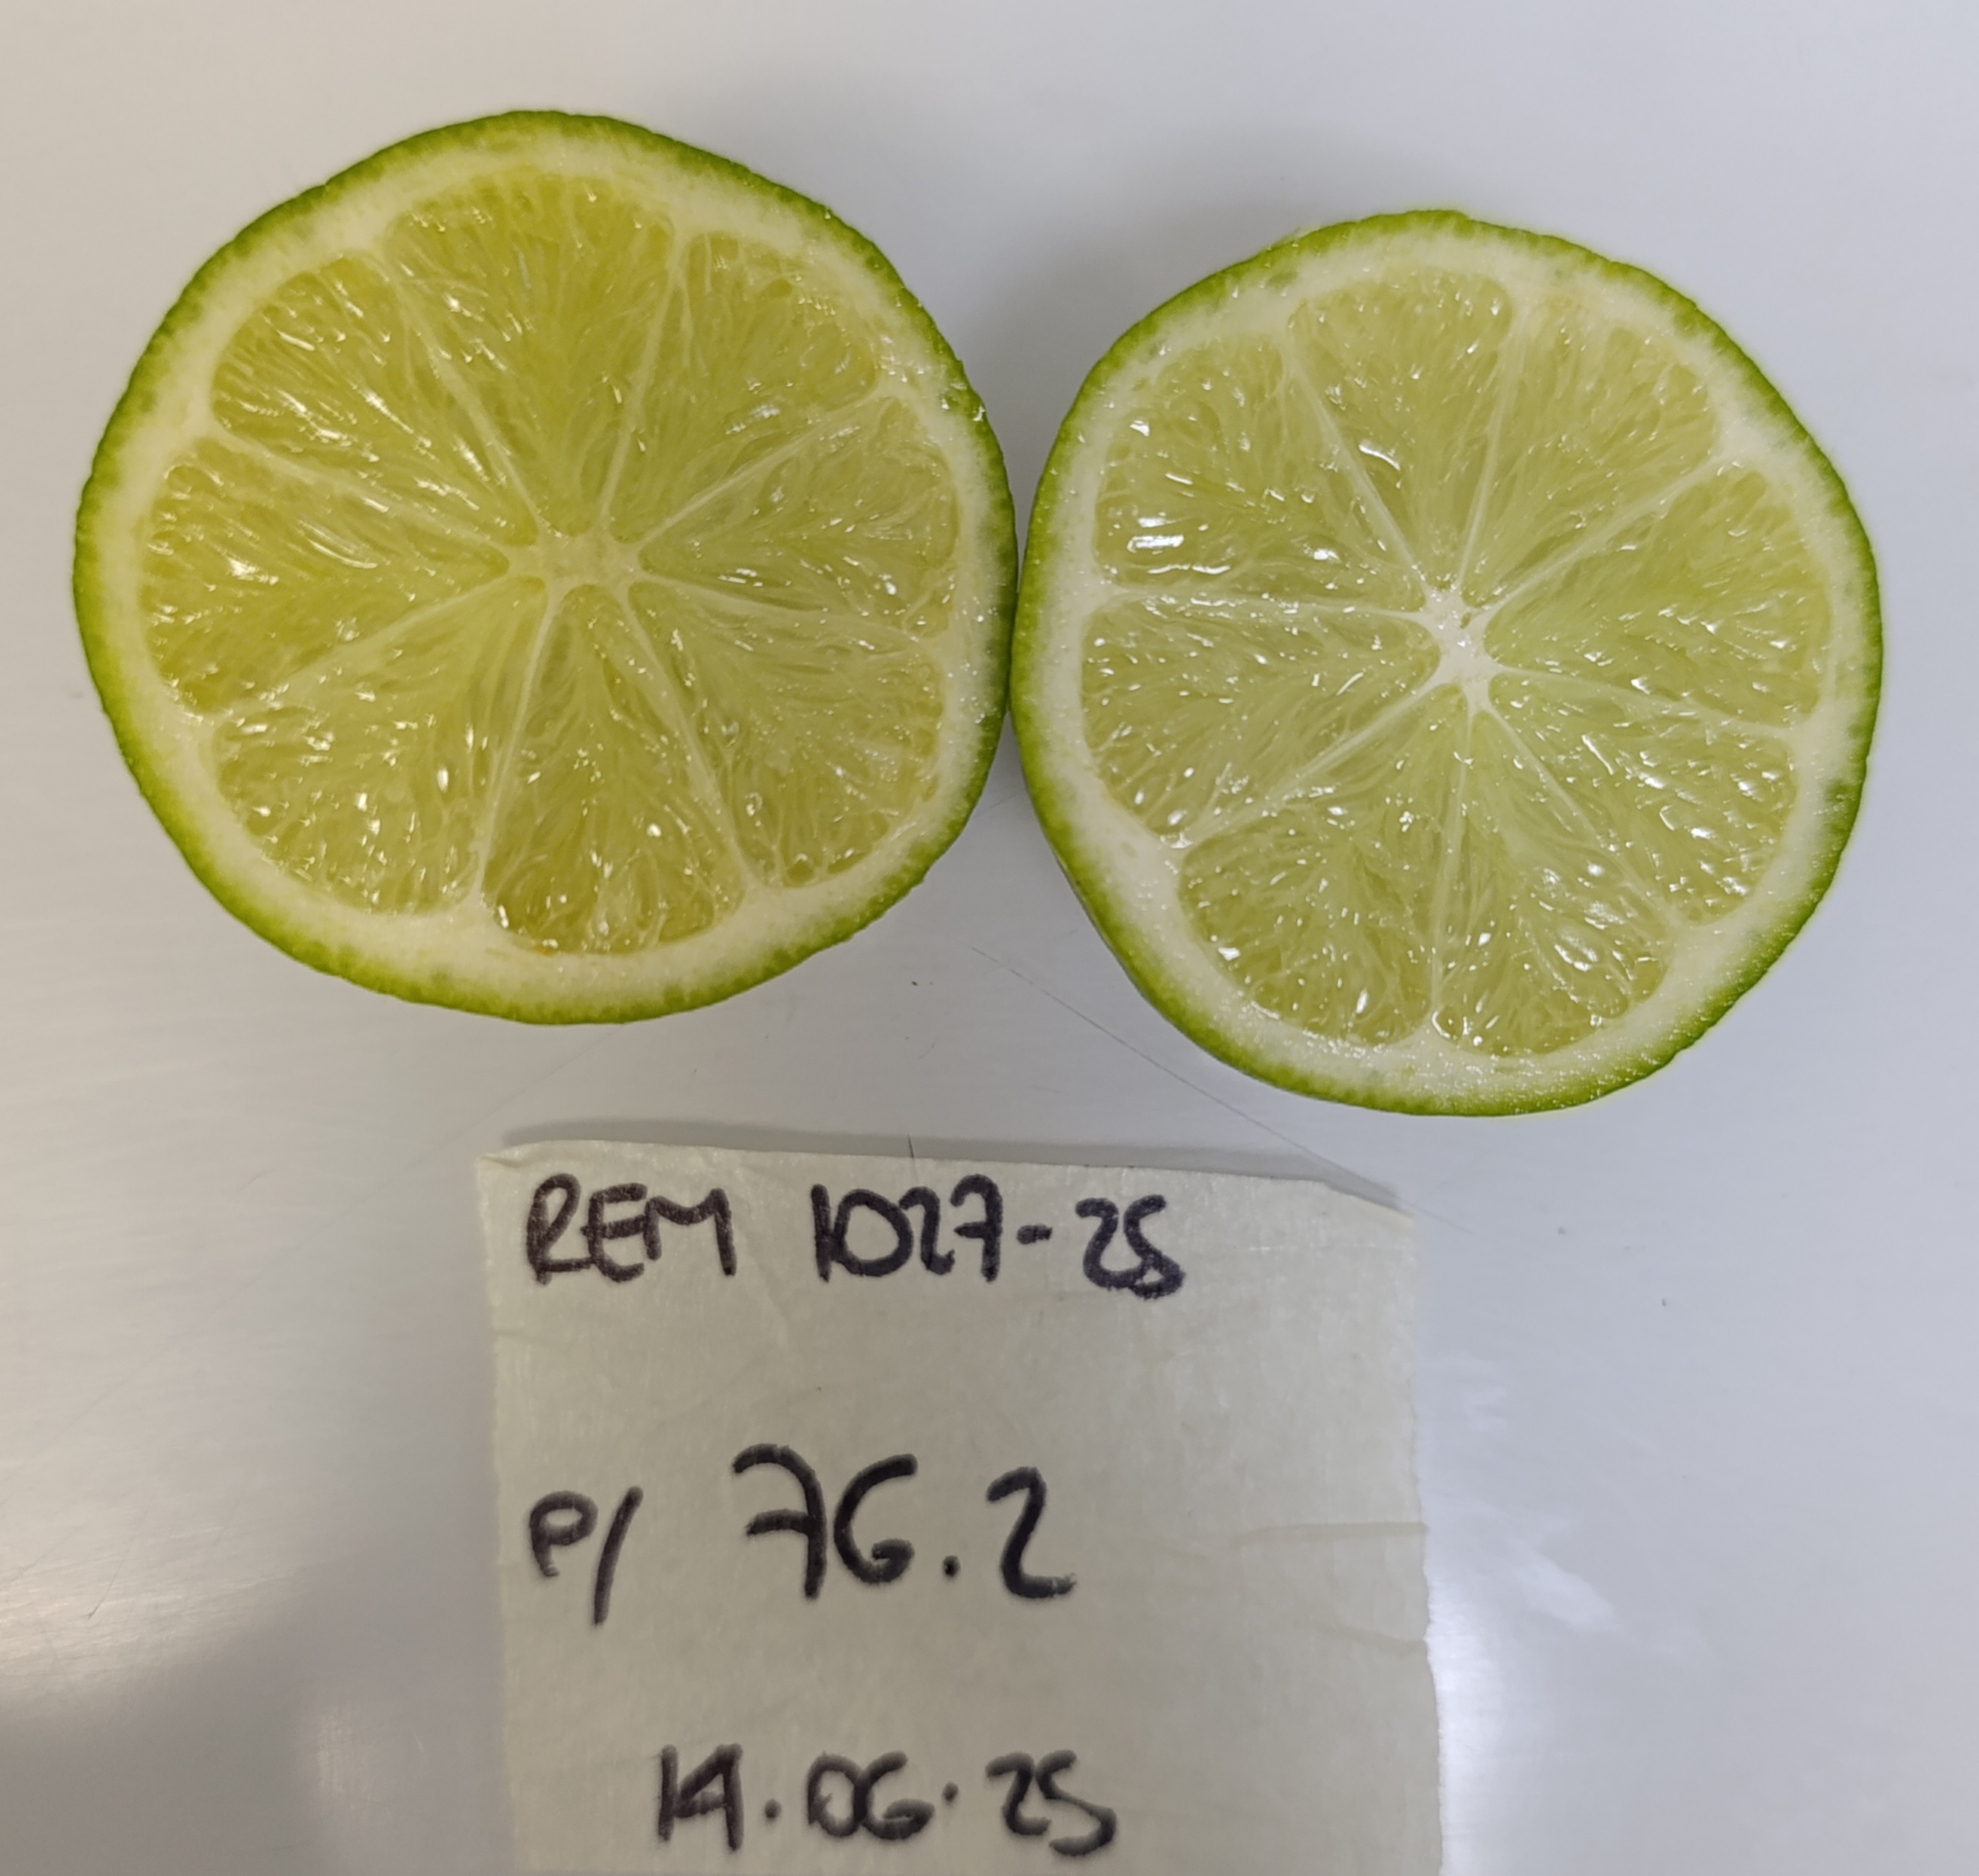 REM 1027-25
P/ 76.2
14.06.25